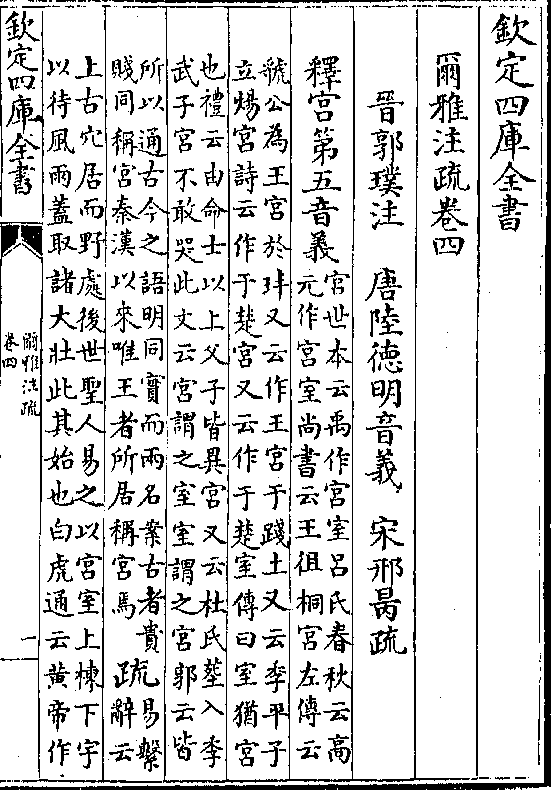 欽定四庫全書
爾雅注疏卷四
晉郭璞注 唐陸德明音義 宋邢昺疏
釋宫第五音義
宫世本云禹作宫室吕氏春秋云高
元作宫室尚書云王徂桐宫左傳云
虢公為王宫於玤又云作王宫于踐土又云季平子
立煬宫詩云作于楚宫又云作于楚室傳曰室猶宫
也禮云由命士以上父子皆異宫又云杜氏塟入季
武子宫不敢哭此文云宫謂之室室謂之宫郭云皆
所以通古今之語明同實而兩名案古者貴
賤同稱宫秦漢以來唯王者所居稱宫焉
疏
易繫
辭云
上古穴居而野處後世聖人易之以宫室上棟下宇
以待風雨蓋取諸大壯此其始也白虎通云黄帝作
欽定四庫全書
爾雅注疏
卷四
一